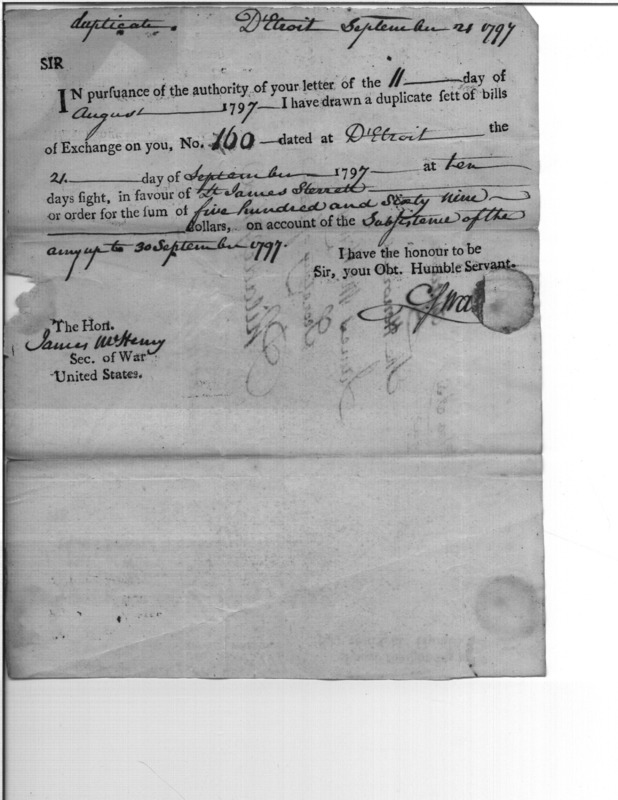 duplicate. D'Etroit September 21 1797
SIR
IN pursuance of the authority of your letter of the 11 day of
August 1797 I have drawn a duplicate sett of bills
of Exchange on you, No. 160 dated at D'Etroit the
21 day of September 1797 at ten
days sight, in favour of Lt James Sterrett
or order for the sum of five hundred and Sixty nine
dollars, on account of the Subsistence of the
army up to 30 September 1797.
I have the honour to be
Sir, your Obt. Humble Servant.
The Hon.
James McHenry
Sec. of War
United States.